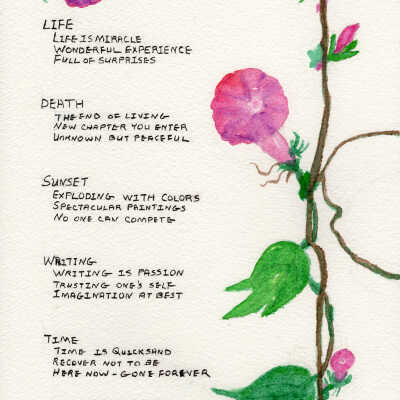 LIFE
LIFE IS MIRACLE
WONDERFUL EXPERIENCE
FULL OF SURPRISES
DEATH
THE END OF LIVING
NEW CHAPTER YOU ENTER
UNKNOWN BUT PEACEFUL
SUNSET
EXPLODING WITH COLORS
SPECTACULAR PAINTINGS
NO ONE CAN COMPETE
WRITING
WRITING IS PASSION
TRUSTING ONE'S SELF
IMAGINATION AT BEST
TIME
TIME IS QUICKSAND
RECOVER NOT TO BE
HERE NOW - GONE FOREVER